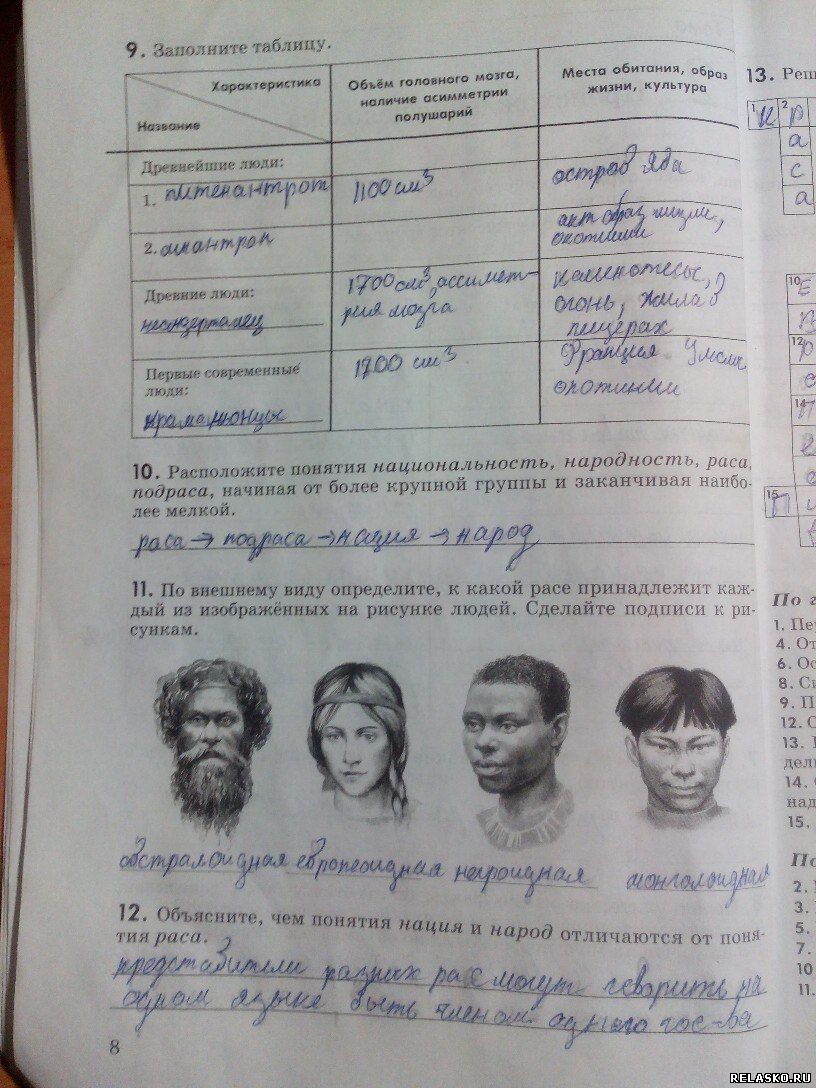 9. Заполните таблицу.
Характеристика
Название
Объём головного мозга,
наличие асимметрии
полушарий
Места обитания, образ
жизни, культура
Древнейшие люди:
1. питекантроп
1100 см³
остров Ява
2. синантроп
акт образ жизни,
охотники
Древние люди:
неондерталец
1700 см³, ассимет-
рия мозга
каменотесы,
огонь, жила в
пищерах
Первые современные
люди:
краманьонцы
1700 см³
Франция
охотники
10. Расположите понятия национальность, народность, раса,
подраса, начиная от более крупной группы и заканчивая наибо-
лее мелкой.
раса → подраса → нация → народ
11. По внешнему виду определите, к какой расе принадлежит каж-
дый из изображённых на рисунке людей. Сделайте подписи к ри-
сункам.
австралоидная европеоидная негроидная монголоидная
12. Объясните, чем понятия нация и народ отличаются от поня-
тия раса.
представители разных рас могут говорить на
одном языке быть членом одного гос-ва
8
13. Реш
1 к 2 р
а
с
а
10 Е
12 р
14 П
е
15 П
По г
1. Пе
4. От
6. Ос
8. Си
9. П
12. С
13.
дел
14.
над
15.
По
2.
3.
5.
7.
10
11.
RELASKO.RU